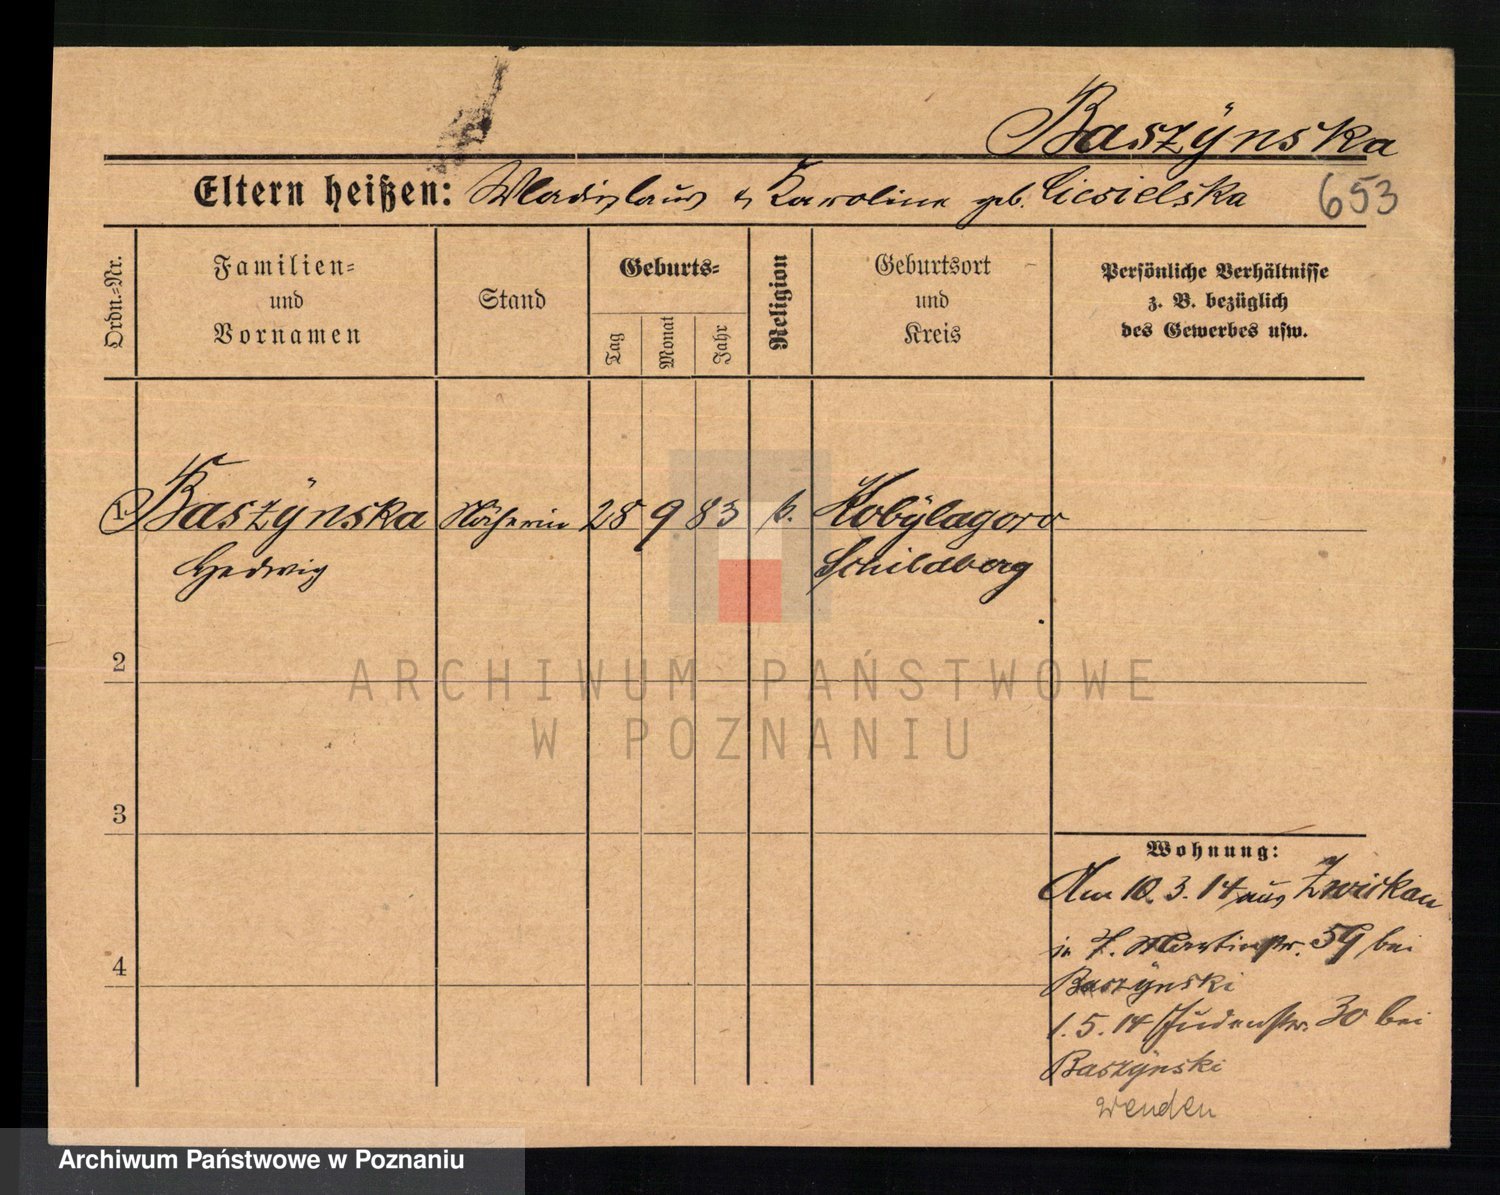 Baszÿnska
Eltern heißen: Wladislaus & Karoline geb. Ciesielska 653
Ordn.-Nr.
Familien-
und
Vornamen
Stand
Geburts-
Tag
Monat
Jahr
Religion
Geburtsort
und
Kreis
Persönliche Verhältnisse
z. B. bezüglich
des Gewerbes usw.
1. Baszÿnska Näherin 28 9 83 k. Kobÿlagora
Hedwig Schildberg
2
ARCHIWUM PAŃSTWOWE
W POZNANIU
3
Wohnung:
Am 10.3.14 aus Zwickau
in Martinstr. 59 bei
4
Baszÿnski
1.5.14 Judenstr. 30 bei
Baszÿnski
wenden
Archiwum Państwowe w Poznaniu